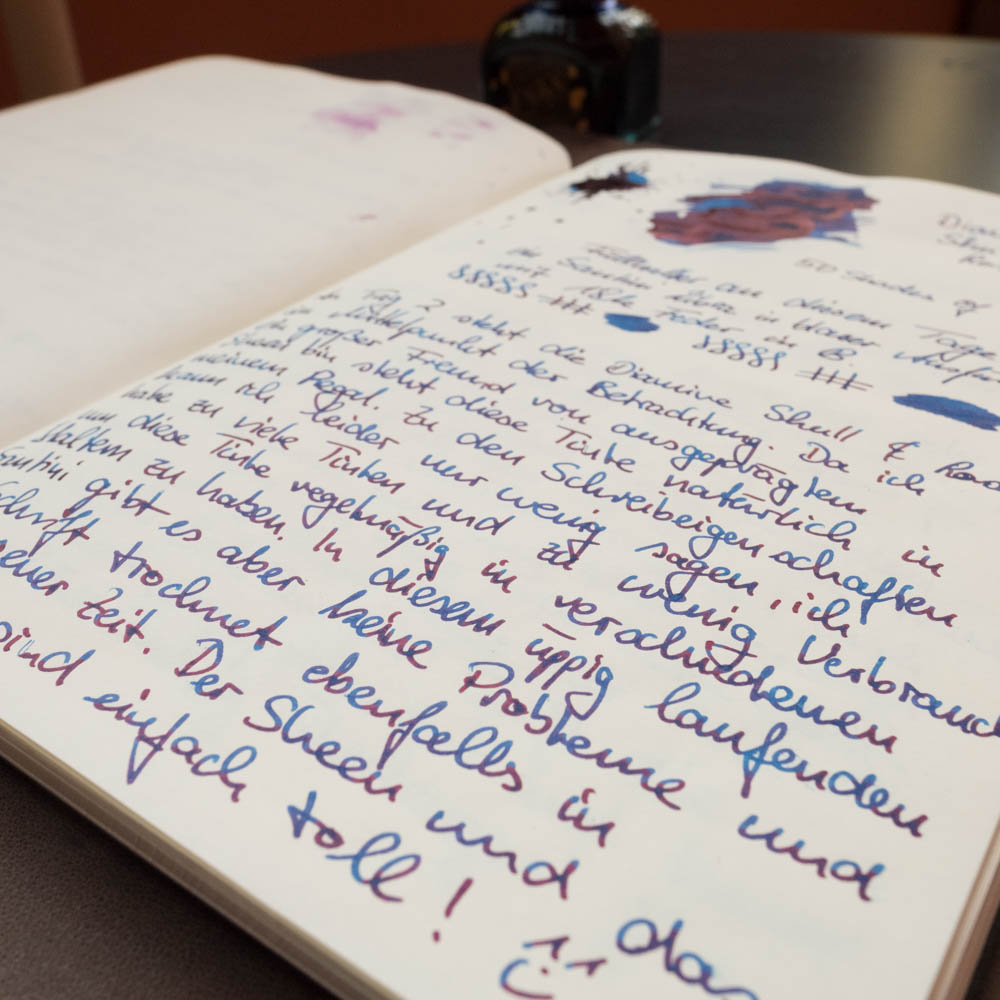 50 shades of
Füllhalter an diesem Tage
mit 18k Feder in B.
Tag 2 steht die Diamine Skull &
Mittelpunkt der Betrachtung. Da ich
großer Freund von ausgeprägtem
bin steht diese Tinte natürlich in
meinem Regal. Zu den Schreibeigenschaften
kann ich leider nur wenig sagen, ich
habe zu viele Tinten und zu wenig Verbrauch
um diese Tinte regelmäßig in verschiedenen
Haltern zu haben. In diesem üppig laufenden
gibt es aber keine Probleme und
Schrift trocknet ebenfalls in
Zeit. Der Sheen und das
sind einfach toll!